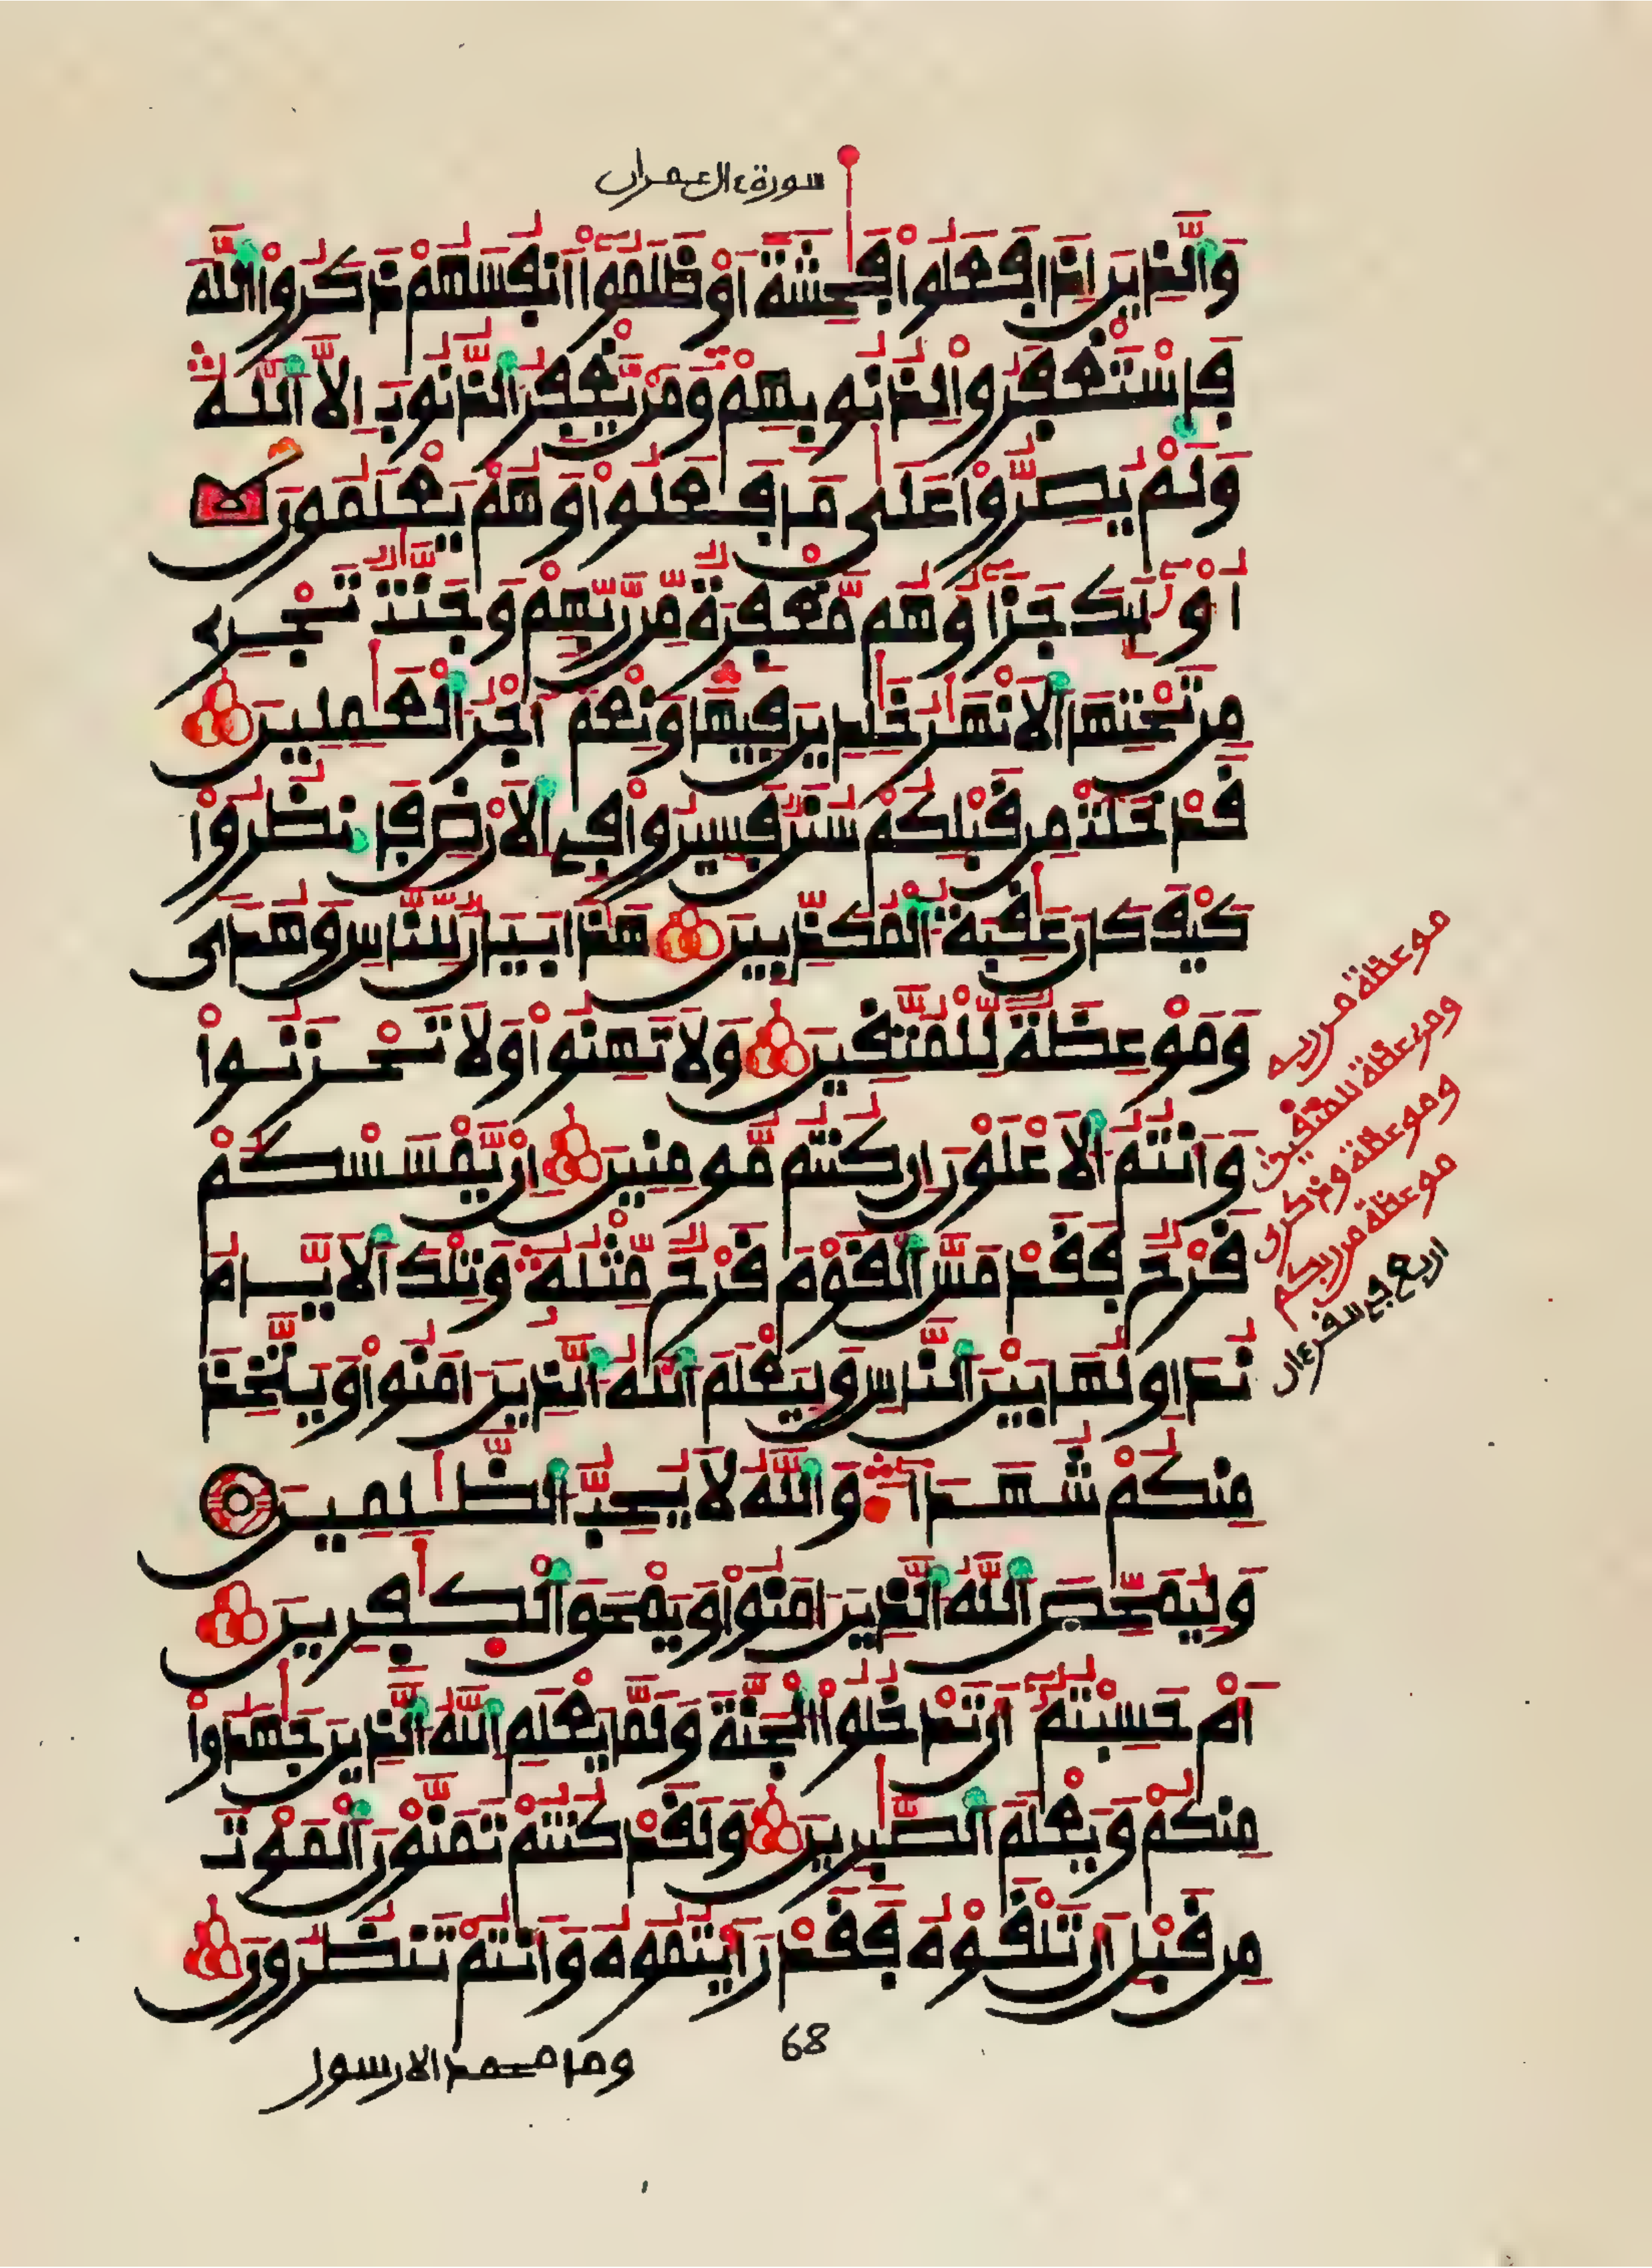 سورة ءال عمران
وَالذِينَ إِذَا فَعَلُواْ فَٰحِشَةً اَوْ ظَلَمُوٓاْ أَنفُسَهُمْ ذَكَرُواْ اللَّهَ
فَاسْتَغْفَرُواْ لِذُنُوبِهِمْ وَمَنْ يَّغْفِرُ الذُّنُوبَ إِلاَّ اَللَّهُ
وَلَمْ يُصِرُّواْ عَلَىٰ مَا فَعَلُواْ وَهُمْ يَعْلَمُونَ
أُوْلَٰٓئِكَ جَزَآؤُهُم مَّغْفِرَةٌ مِّن رَّبِّهِمْ وَجَنَّٰتٌ تَجْرِي
مِن تَحْتِهَا اَلَانْهَٰرُ خَٰلِدِينَ فِيهَا وَنِعْمَ أَجْرُ الْعَٰمِلِينَ
قَدْ خَلَتْ مِن قَبْلِكُمْ سُنَنٌ فَسِيرُواْ فِي اِلَارْضِ فَانظُرُواْ
كَيْفَ كَانَ عَٰقِبَةُ الْمُكَذِّبِينَ هَٰذَا بَيَانٌ لِّلنَّاسِ وَهُدًى
وَمَوْعِظَةٌ لِّلْمُتَّقِينَ وَلَا تَهِنُواْ وَلَا تَحْزَنُواْ
وَأَنتُمُ الَاعْلَوْنَ إِن كُنتُم مُّومِنِينَ إِنْ يَّمْسَسْكُمْ
قَرْحٌ فَقَدْ مَسَّ الْقَوْمَ قَرْحٌ مِّثْلُهُ وَتِلْكَ اَلَايَّامُ
نُدَاوِلُهَا بَيْنَ النَّاسِ وَلِيَعْلَمَ اللَّهُ الذِينَ ءَامَنُواْ وَيَتَّخِذَ
مِنكُمْ شُهَدَآءَ وَاللَّهُ لَا يُحِبُّ الظَّٰلِمِينَ
وَلِيُمَحِّصَ اللَّهُ الذِينَ ءَامَنُواْ وَيَمْحَقَ الْكَٰفِرِينَ
أَمْ حَسِبْتُمُٓ أَن تَدْخُلُواْ الْجَنَّةَ وَلَمَّا يَعْلَمِ اللَّهُ الذِينَ جَٰهَدُواْ
مِنكُمْ وَيَعْلَمَ الصَّٰبِرِينَ وَلَقَدْ كُنتُمْ تَمَنَّوْنَ الْمَوْتَ
مِن قَبْلِ أَن تَلْقَوْهُ فَقَدْ رَأَيْتُمُوهُ وَأَنتُمْ تَنظُرُونَ
68
وما محمد الا رسول
موعظة من ربه
وموعظة للمتقين
وموعظة وذكرى
موعظة من ربكم
اربع في القرءان